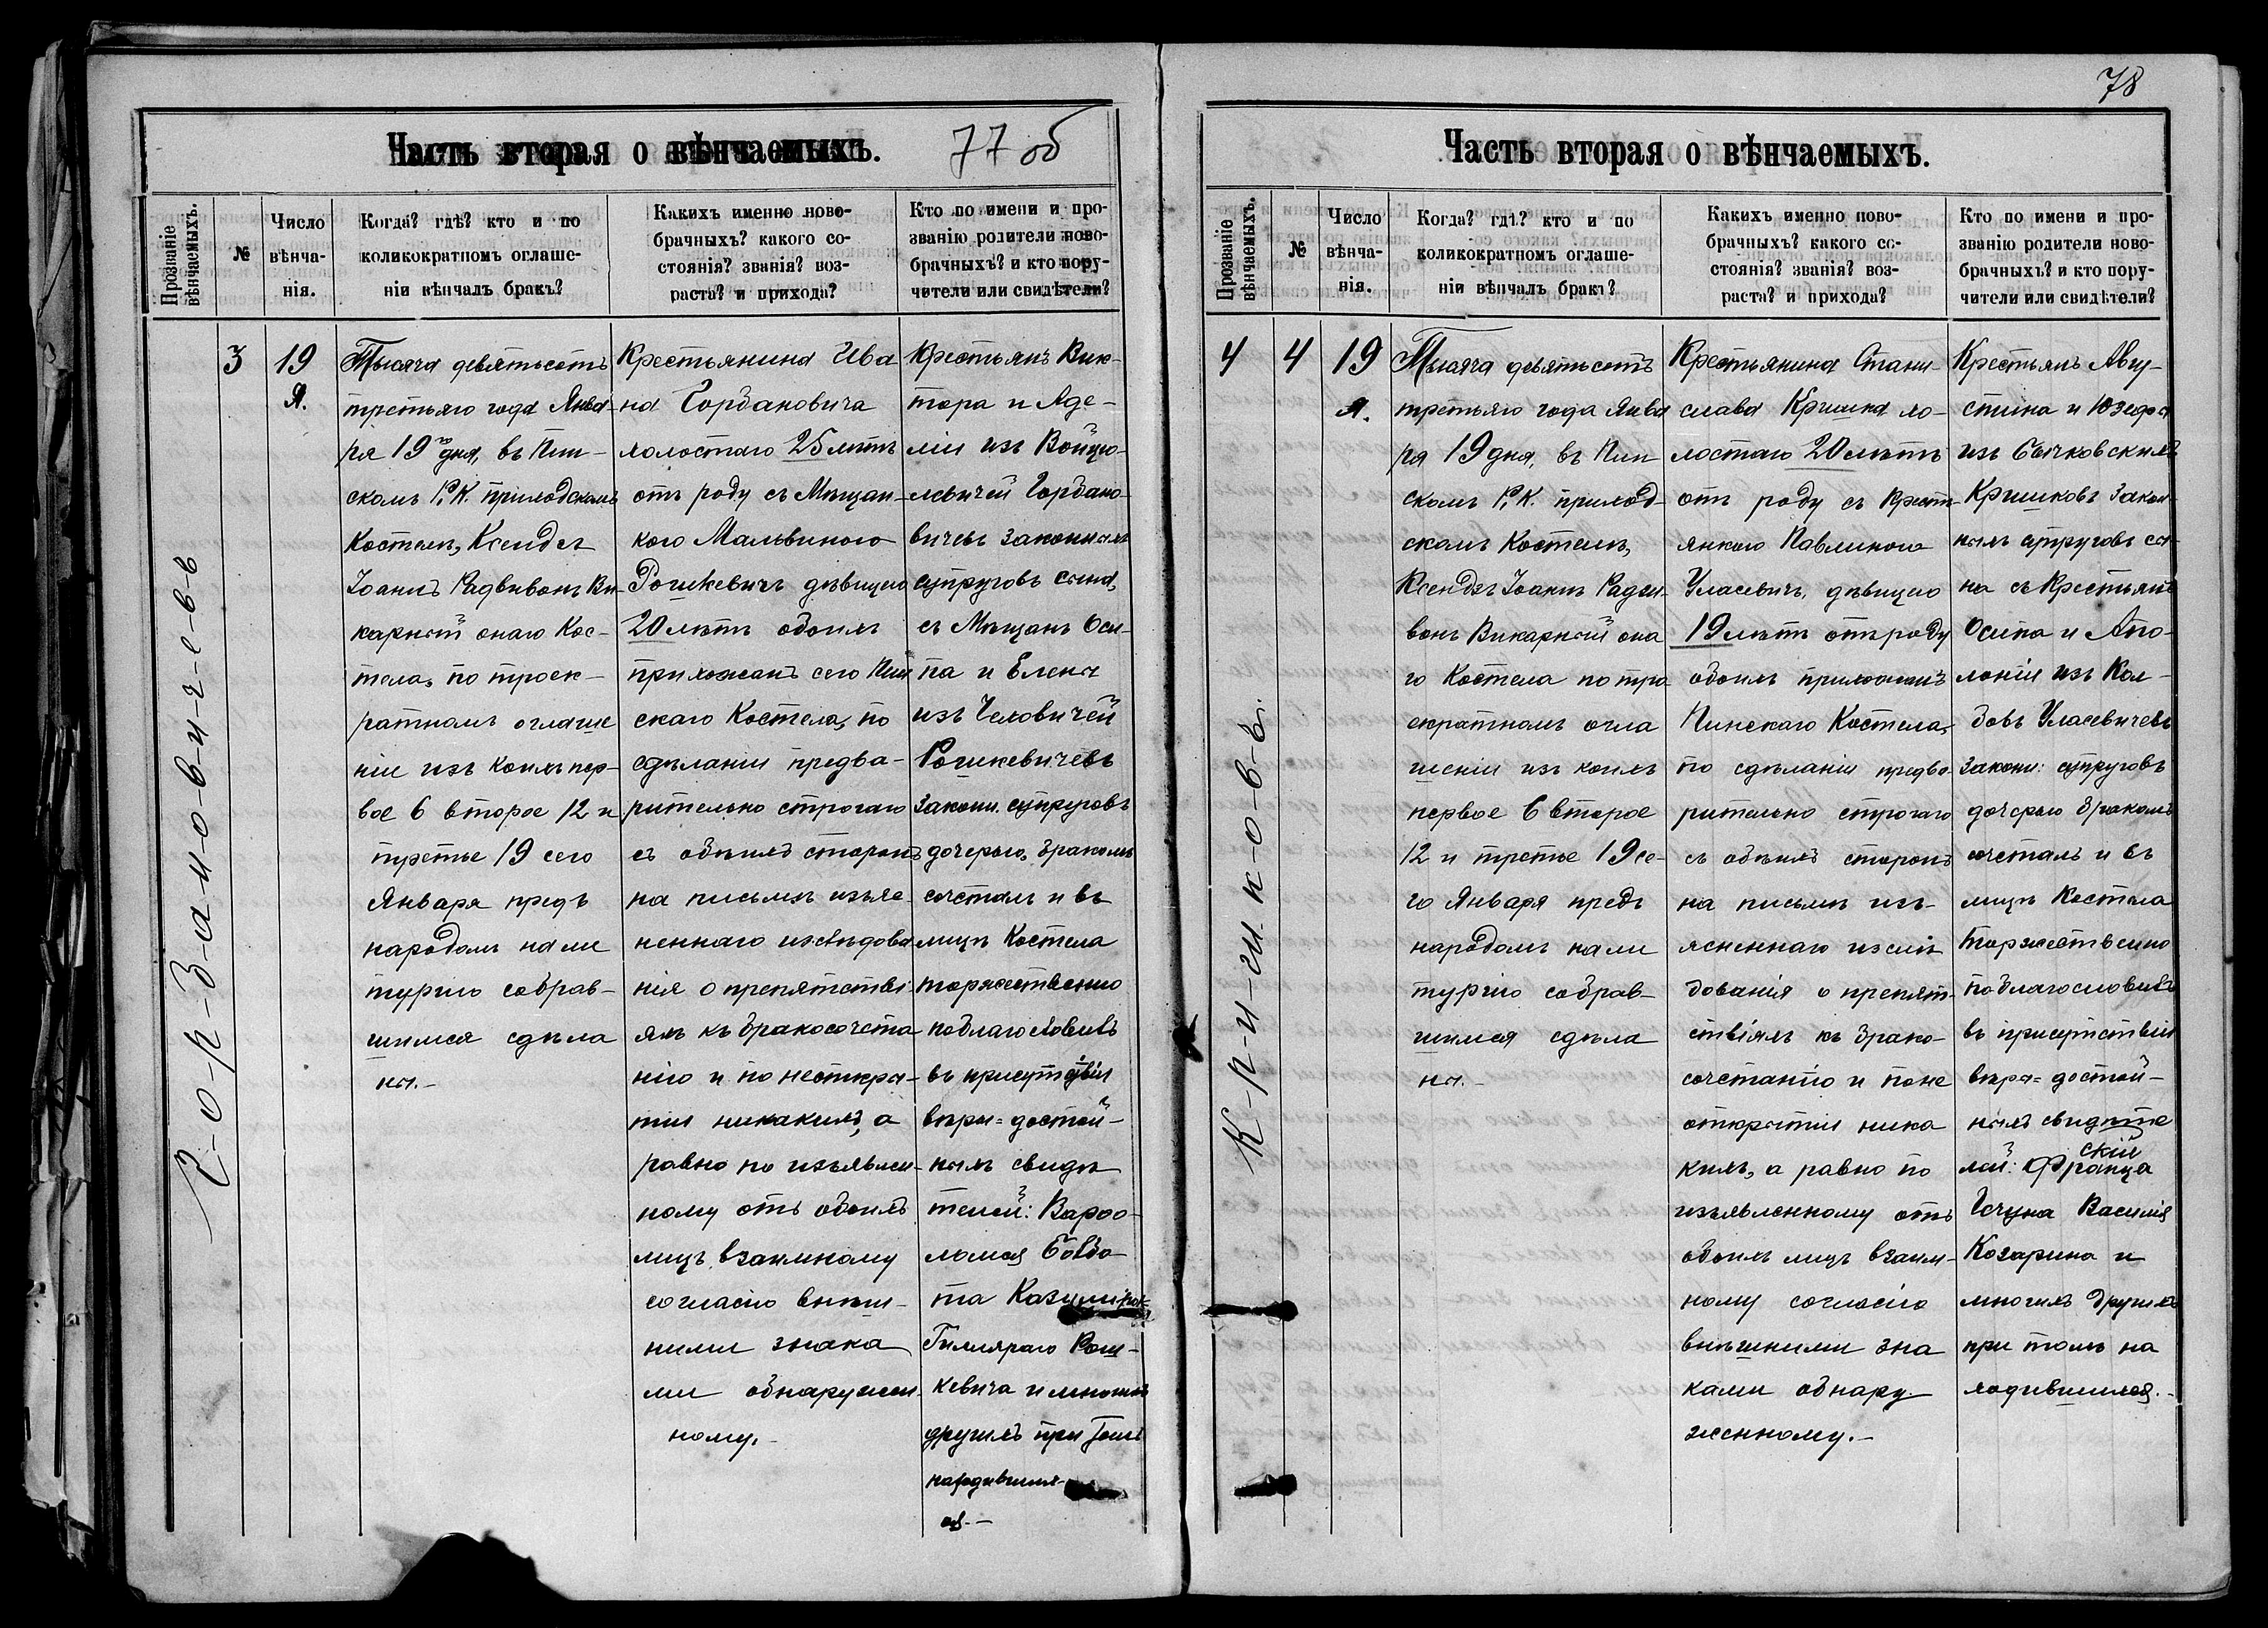 77 об
Часть вторая о вѣнчаемыхъ.
Прозваніе
вѣнчаемыхъ.
№
Число
вѣнча-
нія.
Когда? гдѣ? кто и по
коликократномъ оглаше-
ніи вѣнчалъ бракъ?
Какихъ именно ново-
брачныхъ? какого со-
стоянія? званія? воз-
раста? и прихода?
Кто по имени и про-
званію родители ново-
брачныхъ? и кто пору-
чители или свидѣтели?
3
19
Я.
Тысяча девятьсотъ
третьяго года Янва-
ря 19го дня, въ Пин-
скомъ Р. К. приходскомъ
Костелѣ, Ксендзъ
Іоаннъ Ви-
карный онаго Кос-
тела, по троек-
ратномъ оглаше
ніи изъ коихъ пер-
вое 6 второе 12 и
третье 19 сего
Января предъ
народомъ на ли
тургію собрав-
шимся сдѣла
ны.-
Крестьянина Ива
на Горбановича
холостаго 25 лѣтъ
отъ роду съ Мѣщан-
кою Мальвиною
Рошкевичъ дѣвицею
20 лѣтъ обоихъ
прихожанъ сего Пин
скаго Костела, по
сдѣланіи предва-
рительно строгаго
съ обѣихъ сторонъ
на письмѣ изъяс
неннаго изслѣдова
нія о препятстві
яхъ къ бракосочета
нію и по неоткры-
тіи никакихъ, а
равно по изъявлен-
ному отъ обоихъ
лицъ взаимному
согласію внѣш-
ними знака
ми обнаружен-
ному.-
Крестьянъ Вик-
тора и Аде-
ліи изъ Войцѣ-
ховичей Горбано-
вичевъ законныхъ
супруговъ сына,
съ Мѣщанъ Оси-
па и Елены
изъ
Рошкевичевъ
законн. супруговъ
дочерью, бракомъ
сочеталъ и въ
лицѣ Костела
торжественно
поблагословилъ
въ присутствіи
вѣры=достой-
ныхъ свидѣ
телей: Варѳо-
ломея
та Казимира
Гилляраго Рош-
кевича и многихъ
другихъ при томъ
находивших-
ся.-
Г-о-р-б-а-н-о-в-и-ч-е-в-ъ
78
Часть вторая о вѣнчаемыхъ.
Прозваніе
вѣнчаемыхъ.
№
Число
вѣнча-
нія.
Когда? гдѣ? кто и по
коликократномъ оглаше-
ніи вѣнчалъ бракъ?
Какихъ именно ново-
брачныхъ? какого со-
стоянія? званія? воз-
раста? и прихода?
Кто по имени и про-
званію родители ново-
брачныхъ? и кто пору-
чители или свидѣтели?
4
4
19
Я.
Тысяча девятьсотъ
третьяго года Янва
ря 19 дня, въ Пин
скомъ Р. К. приход-
скомъ Костелѣ,
Ксендзъ Іоаннъ
Викарный она
го Костела по тро
екратномъ огла
шеніи изъ коихъ
первое 6 второе
12 и третье 19 се-
го Января предъ
народомъ на ли
тургію собрав-
шимся сдѣла
ны.-
Крестьянина Стани-
слава Кришка хо-
лостаго 20 лѣтъ
отъ роду съ Крест-
янкою Павлиною
Уласевичъ, дѣвицею
19 лѣтъ отъ роду
обоихъ прихожанъ
Пинскаго Костела,
по сдѣланіи предва-
рительно строгаго
съ обѣихъ сторонъ
на письмѣ изъ-
ясненнаго изслѣ
дованія о препят-
ствіяхъ къ брако-
сочетанію и по не
открытіи ника
кихъ, а равно по
изъявленному отъ
обоихъ лицъ взаим-
ному согласію
внѣшними зна
ками обнару-
женному.-
Крестьянъ Авгу-
стина и Юзефы
изъ Сычковскихъ
Кришковъ закон-
ныхъ супруговъ сы-
на съ Крестьянъ
Осипа и Апо-
лоніи изъ Кол-
бовъ Уласевичевъ
законн: супруговъ
дочерью бракомъ
сочеталъ и въ
лицѣ Костела
торжественно
поблагословилъ
въ присутствіи
вѣры=достой-
ныхъ свидѣте
лей: Франца
Василія
Козарина и
многихъ другихъ
при томъ на
ходившихся.-
К-р-и-ш-к-о-в-ъ.